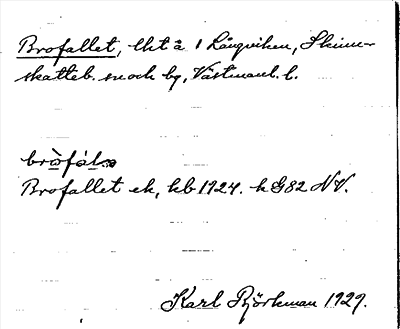 Brofallet, lht å 1 Långviken, Skinn-
skatteb. snoch by, Västmanl. l.
bròfál
Brofallet ek, kb 1924. h G82 NV.
Karl Björkman 1929.